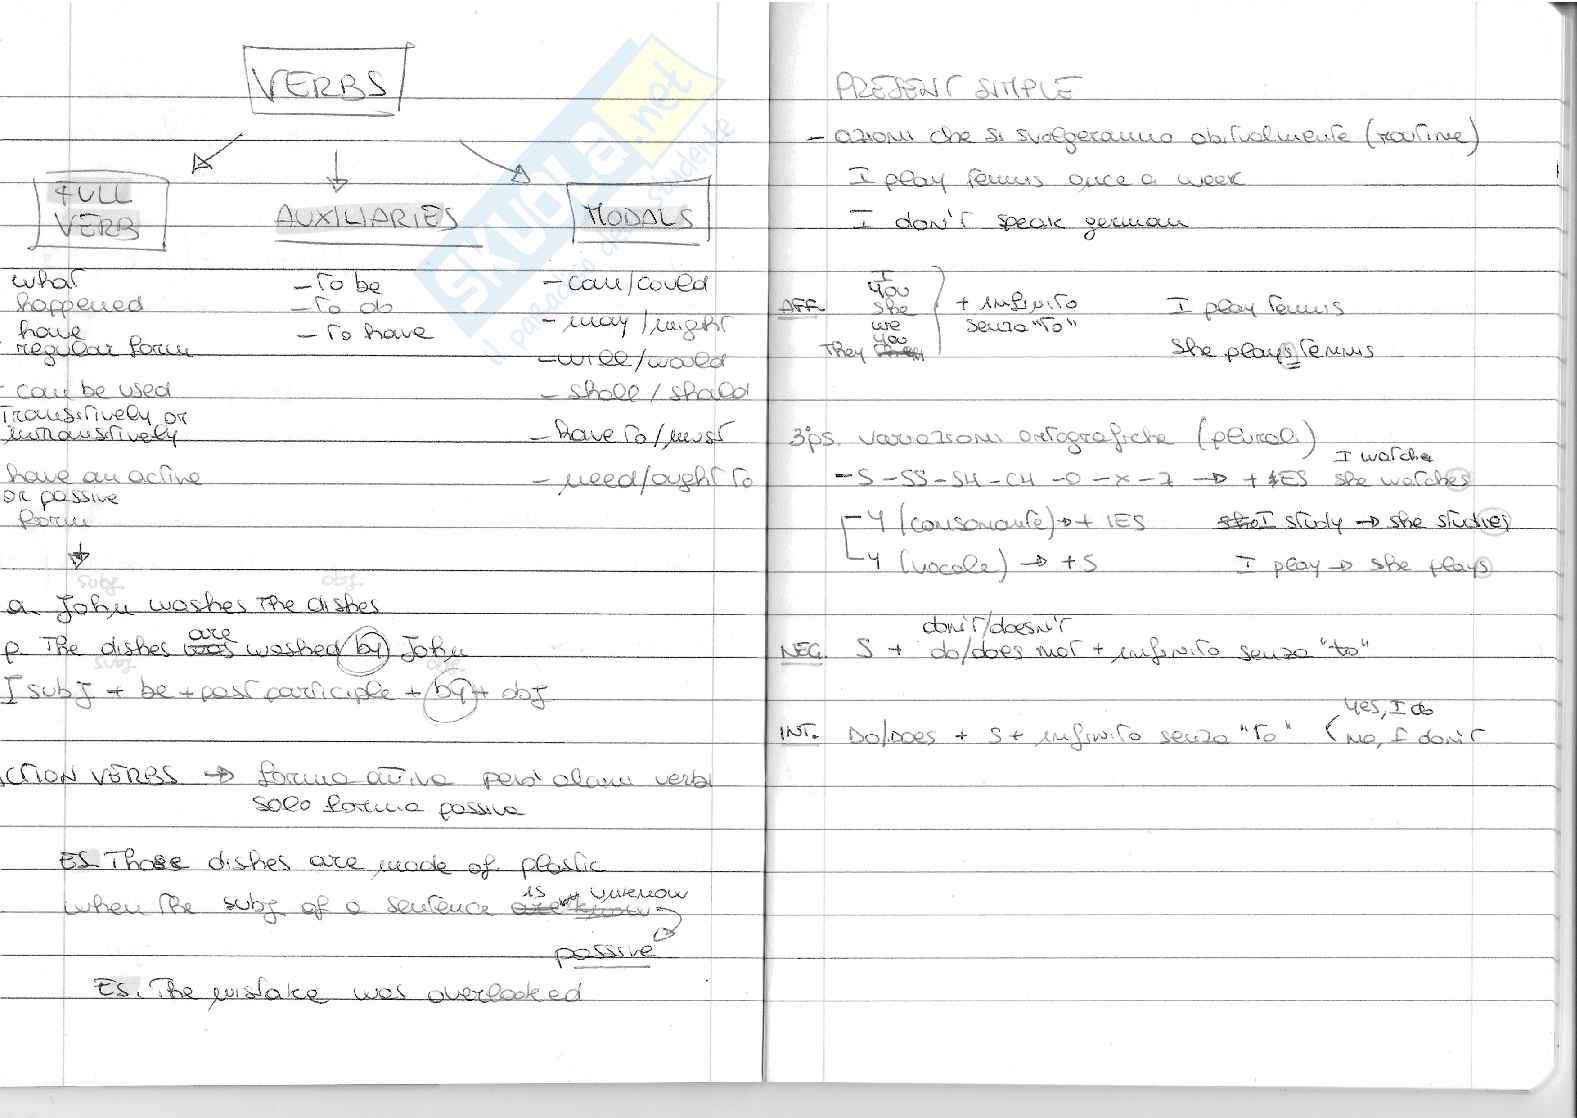 VERBS
FULL
VERB
AUXILIARIES
MODALS
what
happened
have
regular form
- can be used
transitively or
intransitively
have an active
or passive
form
- To be
- To do
- To have
- can/could
- may/might
- will/would
- shall/shald
- have to/must
- need/ought to
subj. obj.
a. John washes the dishes
p The dishes are washed by John
subj
I subj + be + past participle + by + obj
CTION VERBS → forma attiva però alcuni verbi
solo forma passiva
ES. Those dishes are made of plastic
when the subj of a sentence is unknow
passive
ES. The mistake was overlooked
PRESENT SIMPLE
- azioni che si svolgeranno abitualmente (routine)
I play tennis once a week
I don't speak german
AFF.
I
you
she
we
you
They
+ infinito
senza "to"
I play tennis
She plays tennis
3°ps. variazioni ortografiche (plurali)
I watche
- S - SS - SH - CH - O - X - Z → + ES she watches
- Y (consonante) → + IES I study → she studies
- Y (vocale) → + S I play → she plays
don't/doesn't
NEG. S + do/does not + infinito senza "to"
INT. Do/Does + S + infinito senza "to"
Yes, I do
No, I don't
SKUOLA.net
il paradiso dello studente